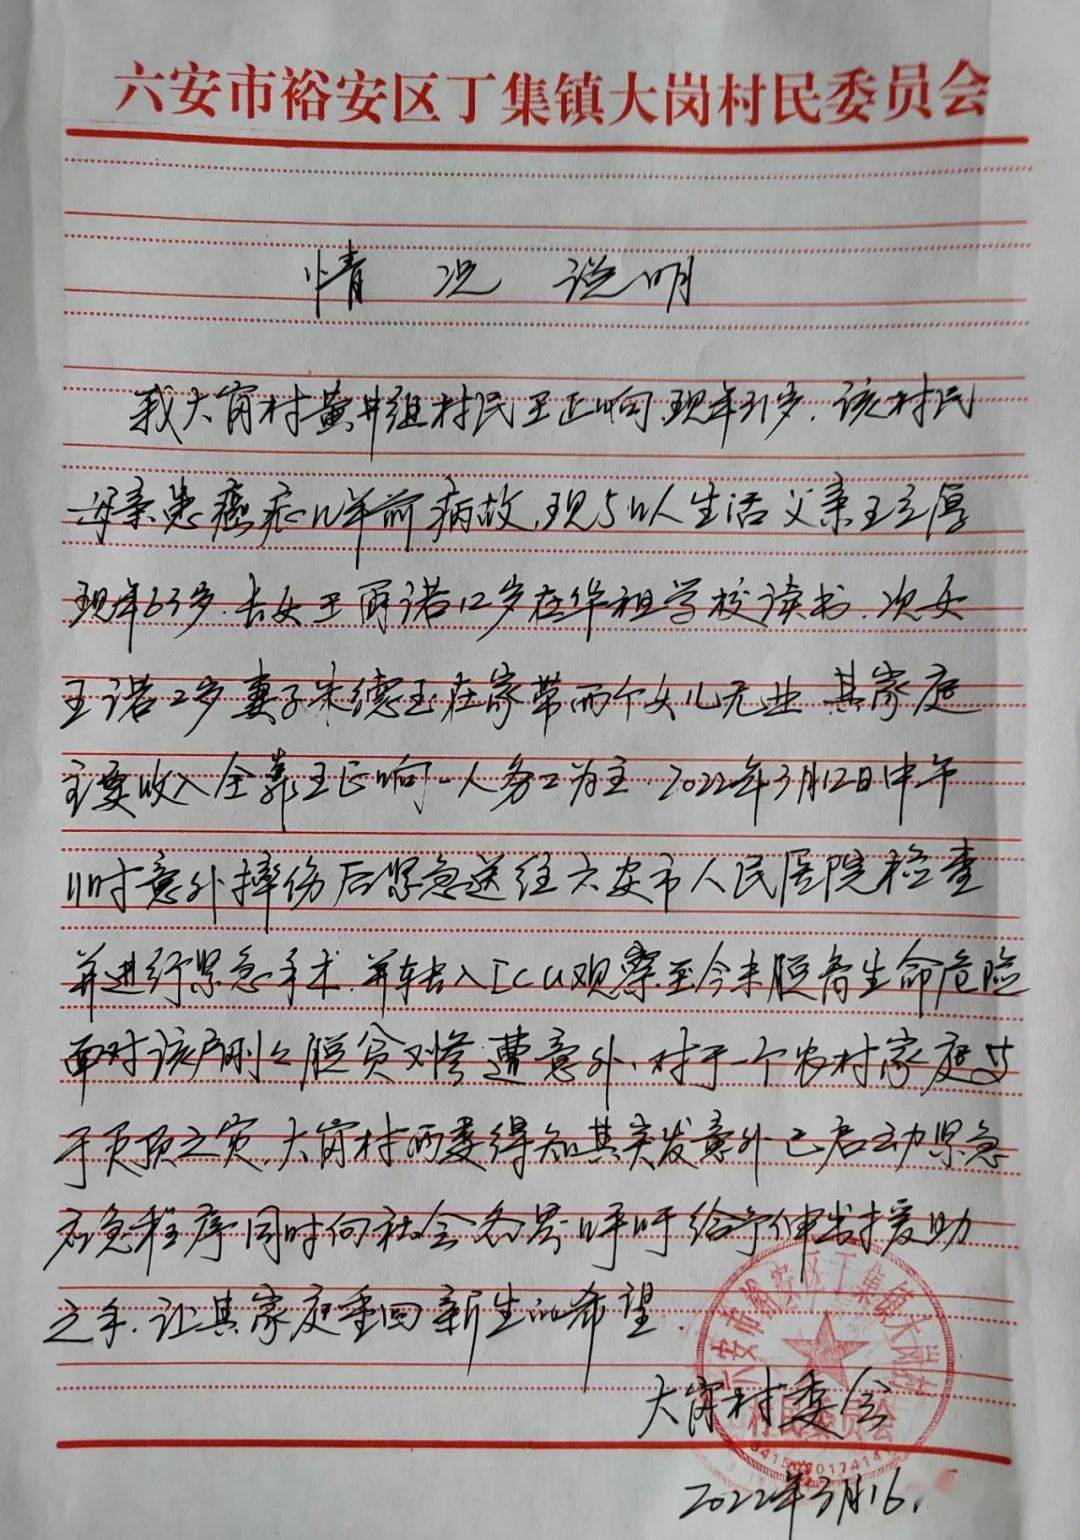 六安市裕安区丁集镇大岗村民委员会
情况说明
我大岗村黄井组村民王正响,现年31岁.该村民
母亲患癌症几年前病故,现5口人生活父亲王立厚
现年63岁.长女王雨诺12岁在华祖学校读书.次女
王诺2岁妻子朱德玉在家带两个女儿无业 其家庭
主要收入全靠王正响一人务工为主.2022年3月12日中午
11时意外摔伤后紧急送往六安市人民医院检查
并进行紧急手术.并转入ICU观察至今未脱离生命危险
面对该户刚刚脱贫又惨遭意外、对于一个农村家庭
于灭顶之灾,大岗村两委得知其突发意外已启动紧急
应急程序同时向社会各界呼吁给予伸出援助
之手.让其家庭重回新生的希望.
大岗村委会
2022年3月16.
六安市裕安区丁集镇大岗村
村民委员会